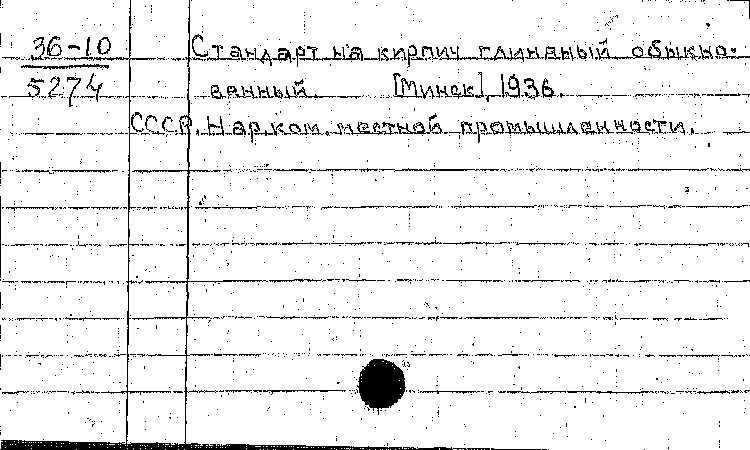 36-10 Стандарт на кирпич глиняный обыкно-
5274 венный. [Минск], 1936.
СССР. Нар. ком. местной промышленности.